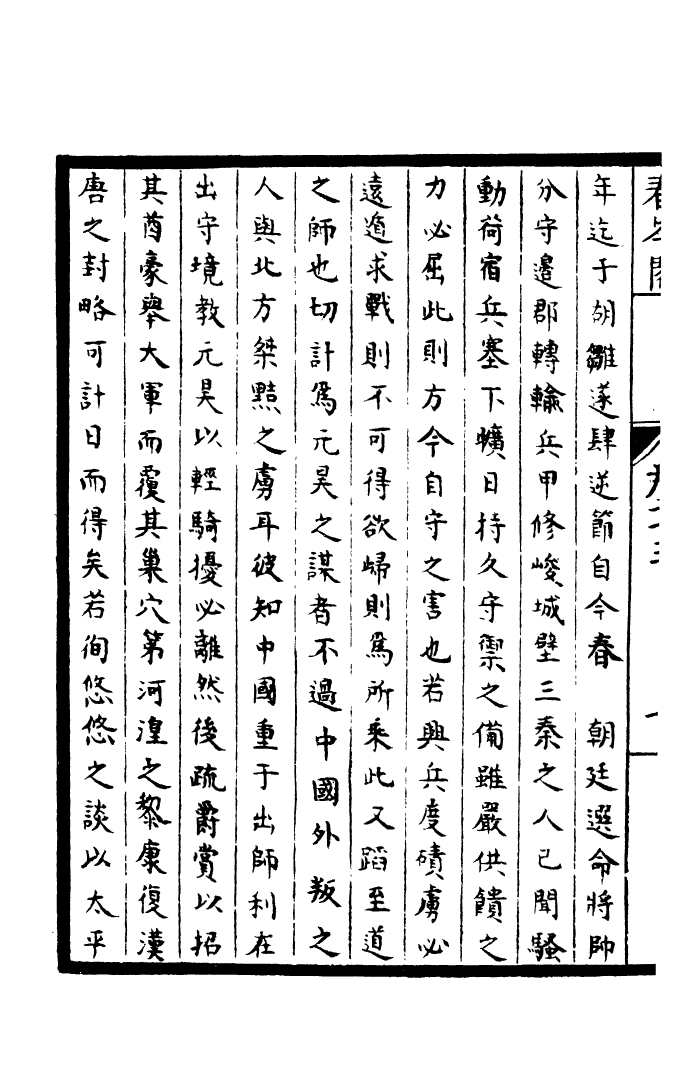 年迄于胡雛遂肆逆節自今春　朝廷選命將帥
分守邊郡轉輸兵甲修峻城壁三秦之人已聞騷
動荷宿兵塞下曠日持久守禦之備雖嚴供饋之
力必屈此則方今自守之害也若興兵度磧虜必
遠遁求戰則不可得欲歸則爲所乘此又蹈至道
之師也切計爲元昊之謀者不過中國外叛之
人與北方桀黠之虜耳彼知中國重于出師利在
出守境教元昊以輕騎擾必離然後疏爵賞以招
其酋豪舉大軍而覆其巢穴第河湟之黎康復漢
唐之封略可計日而得矣若徇悠悠之談以太平